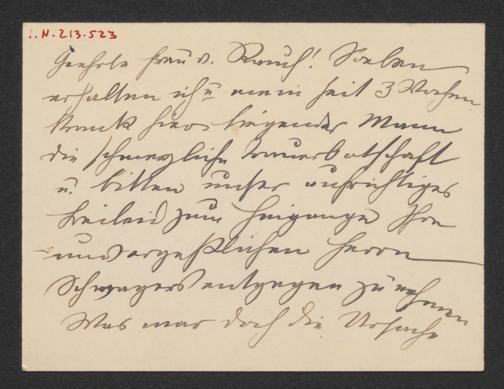 I.N. 213.523
Geehrte Frau v. Rauch! Soeben
erhalten ich u mein seit 3 Wochen
krank hier liegender Mann
die schmerzliche Trauerbotschaft
u. bitten unser aufrichtiges
Beileid zum Heimgange Ihres
unvergeßlichen Herrn
Schwagers entgegen zu nehmen
Was war doch die Ursache